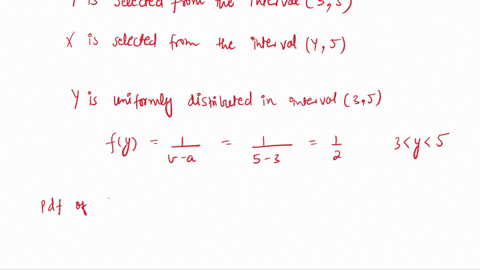 Y is selected from the interval (3,5)
X is selected from the interval (Y, 5)
Y is uniformly distributed in interval (3,5)
f(y) = 1/(b-a) = 1/(5-3) = 1/2 3<y<5
Pdf of